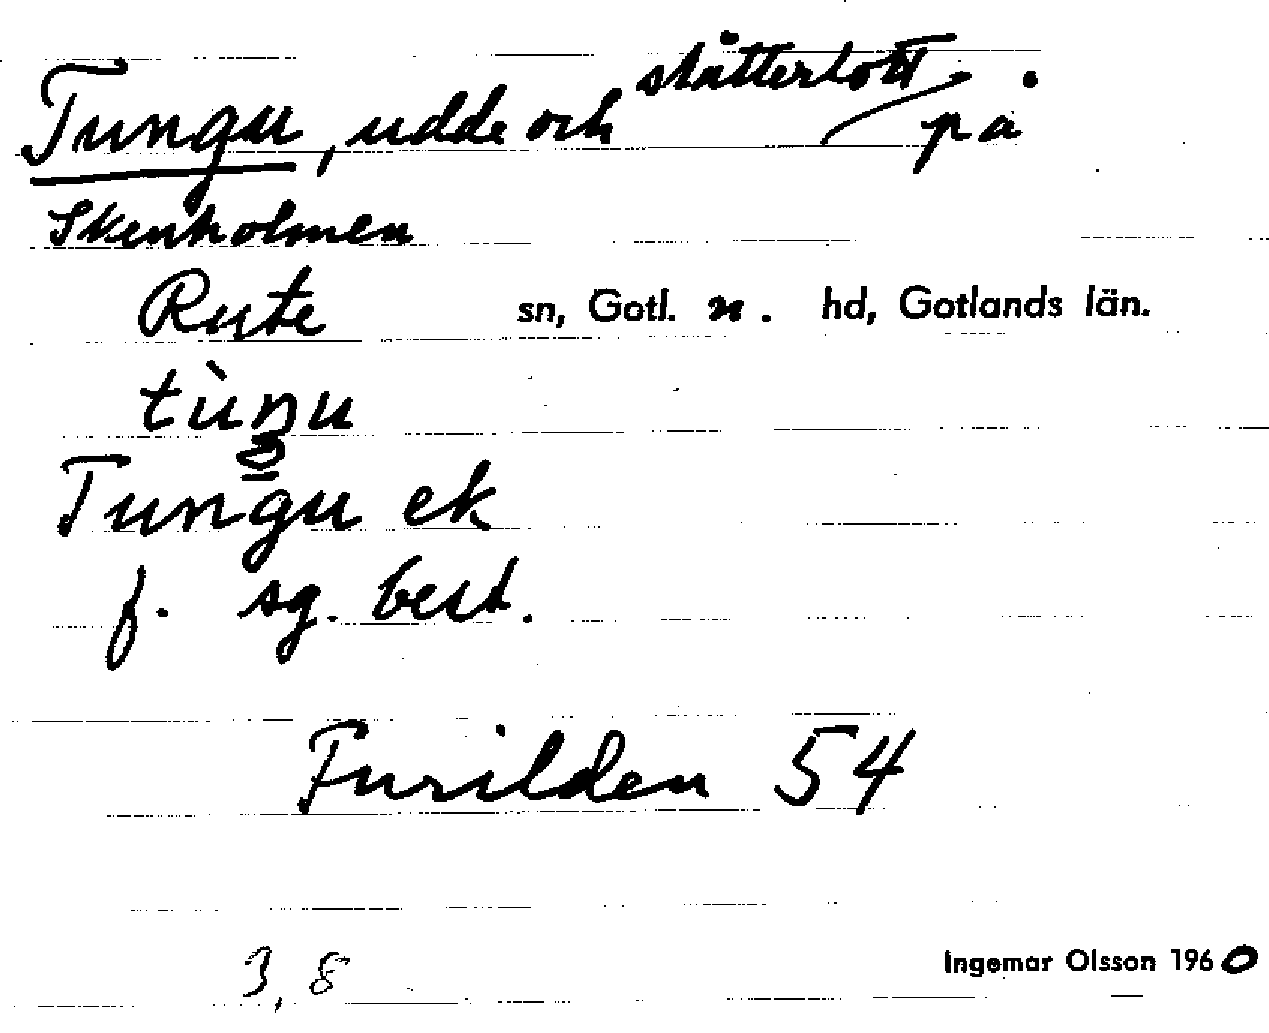 Tungu, udde och slåtterlott på
Skenholmen
Rute sn, Gotl. n. hd, Gotlands län.
tùŋu
Tungu ek
f. sg. best.
Furilden 54
3,8
Ingemar Olsson 1960